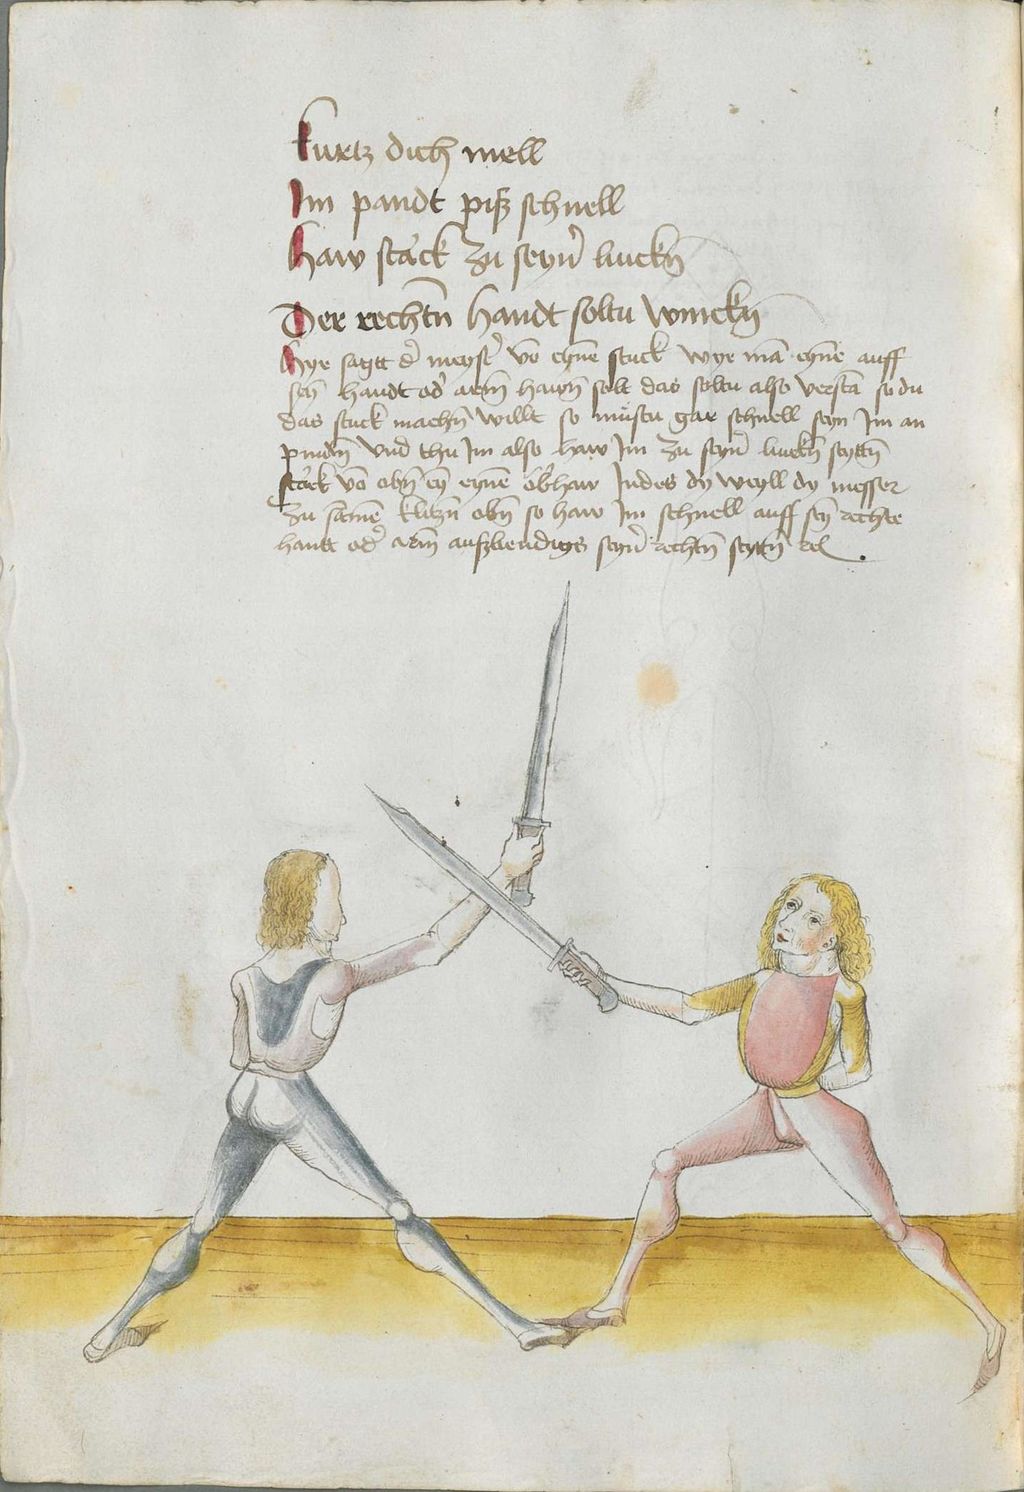 kurtz dich mell
Im pandt piß schnell
haw starck zu seyn̄ linckn̄
Der rechtn̄ handt soltu winckn̄
hye sagtt d' meyst' vō eynē stuck wye mā eynē auff
sein handt od' arm̄ hawn̄ solt das soltu also verstā so du
das stuck machn̄ willt so mustu gar schnell seyn Im an
pindn̄ vnd thu Im also haw Im zu seyn̄ linckn̄ seyttn̄
starck vō obn̄ eynē öbhaw Indes dy weyll dy messer
zu sāmē klitzn̄ obn̄ so haw Im schnell auff sein rechte
hantt od' arm̄ auszwendigs seyn̄ rechtn̄ seyttn̄